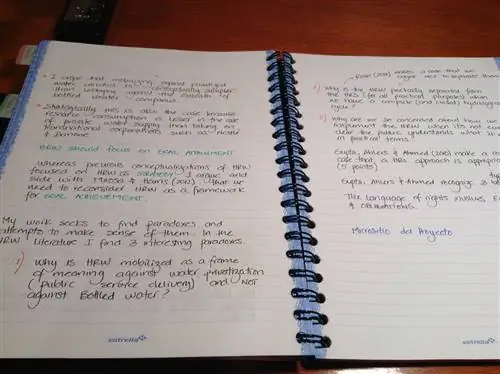 • I argue that mobilizing against privatized
water services is conceptually simpler
than lobbying against the growth of
bottled water companies.
• Strategically this is also the case because
resource consumption is lesser in the case
of private water supply than taking on
transnational corporations such as Nestlé
& Danone.
HRW should focus on GOAL ACHIEVEMENT
Whereas previous conceptualizations of HRW
focused on HRW as I argue and
side with & Harris (2012) that we
need to reconsider HRW as a framework
for GOAL ACHIEVEMENT.
My work seeks to find paradoxes and
attempts to make sense of them. In the
HRW literature I find 3 interesting paradoxes.
1) Why is HRW mobilized as a frame
of meaning against water privatization
(public service delivery) and NOT
against Bottled Water?
estrella
(2012) makes a case that we
need to separate them
2) Why is the HRW practically separated from
the HRS (for all practical purposes) when
we have a complete (and closed) hydrological
cycle?
3) Why are we so concerned about how we
implement the HRW when it's not
clear the public understands what is
in practical terms?
Gupta, Ahlers & Ahmed (2010) make a
case that a HRs approach is appropriate
(5 points)
Gupta, Ahlers & Ahmed recognize 3
The language of rights involves
& obligations.
Micrositio del Proyecto
estrella